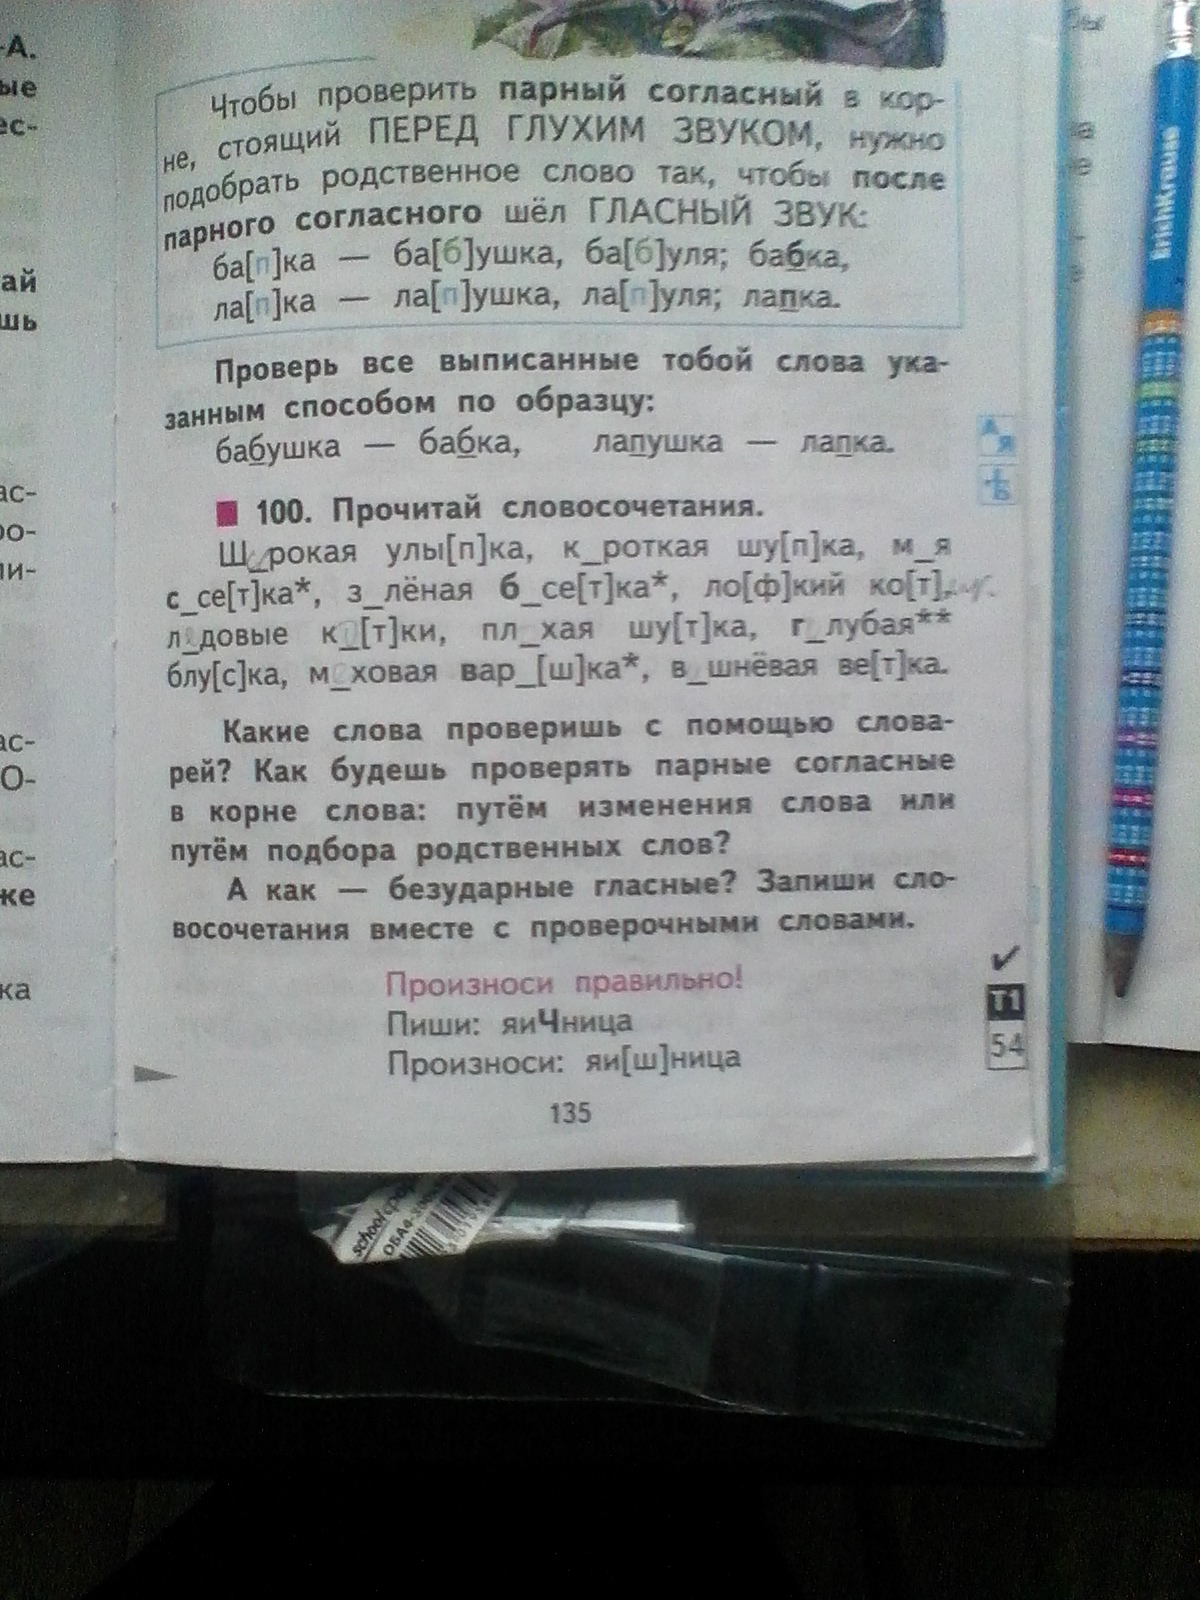 -А.
ые
ес-
ай
шь
ас-
ро-
ли-
ас-
О-
ас-
же
ка
Чтобы проверить парный согласный в кор-
не, стоящий ПЕРЕД ГЛУХИМ ЗВУКОМ, нужно
подобрать родственное слово так, чтобы после
парного согласного шёл ГЛАСНЫЙ ЗВУК:
ба[п]ка — ба[б]ушка, ба[б]уля; бабка,
ла[п]ка — ла[п]ушка, ла[п]уля; лапка.
Проверь все выписанные тобой слова ука-
занным способом по образцу:
бабушка — бабка, лапушка — лапка.
100. Прочитай словосочетания.
Ш_рокая улы[п]ка, к_роткая шу[п]ка, м_я
с_се[т]ка*, з_лёная б_се[т]ка*, ло[ф]кий ко[т],
л_довые к_[т]ки, пл_хая шу[т]ка, г_лубая**
блу[с]ка, м_ховая вар_[ш]ка*, в_шнёвая ве[т]ка.
Какие слова проверишь с помощью слова-
рей? Как будешь проверять парные согласные
в корне слова: путём изменения слова или
путём подбора родственных слов?
А как — безударные гласные? Запиши сло-
восочетания вместе с проверочными словами.
Произноси правильно!
Пиши: яиЧница
Произноси: яи[ш]ница
135
А
Я
Ь
Т1
54
ErichKrause
school